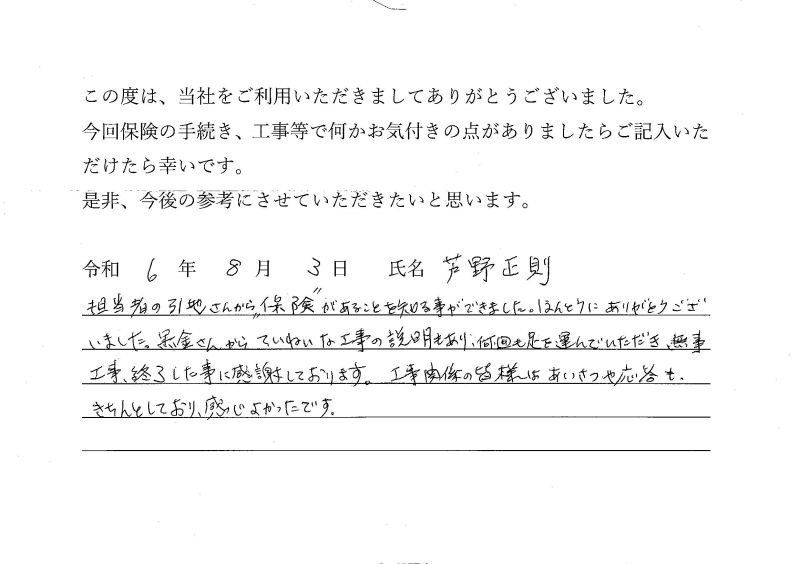 この度は、当社をご利用いただきましてありがとうございました。
今回保険の手続き、工事等で何かお気付きの点がありましたらご記入いた
だけたら幸いです。
是非、今後の参考にさせていただきたいと思います。
令和 6 年 8 月 3 日 氏名 芦野正則
担当者の引地さんから"保険"があることを知る事ができました。ほんとうにありがとうござ
いました。黒金さんからていねいな工事の説明もあり、何回も足を運んでいただき、無事
工事、終了した事に感謝しております。工事関係の皆様はあいさつや応答も、
きちんとしており、感じよかったです。